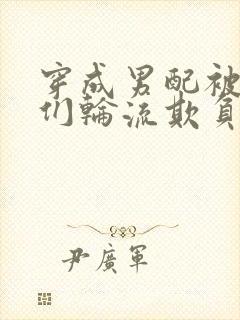 穿成男配被
们轮流欺负
尹廣軍